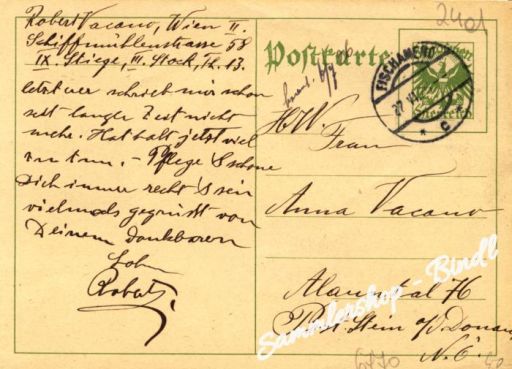 Robert Vacano, Wien II.
Schiffmühlenstrasse 58
IX. Stiege, III. Stock, Th. 13.
schrieb mir schon
seit langer Zeit nicht
mehr. Hat halt jetzt viel
zu tun. - Pflege schone
Dich immer recht & sein
vielmals gegrüsst von
Deinem dankbaren
Sohn
Robert
2401
Postkarte
FISCHAMEND
27 VI
* C *
H.W.
Frau
Anna Vacano
76
Post. Stein a/d. Donau
N.Ö.
Sammlershop - Bindl